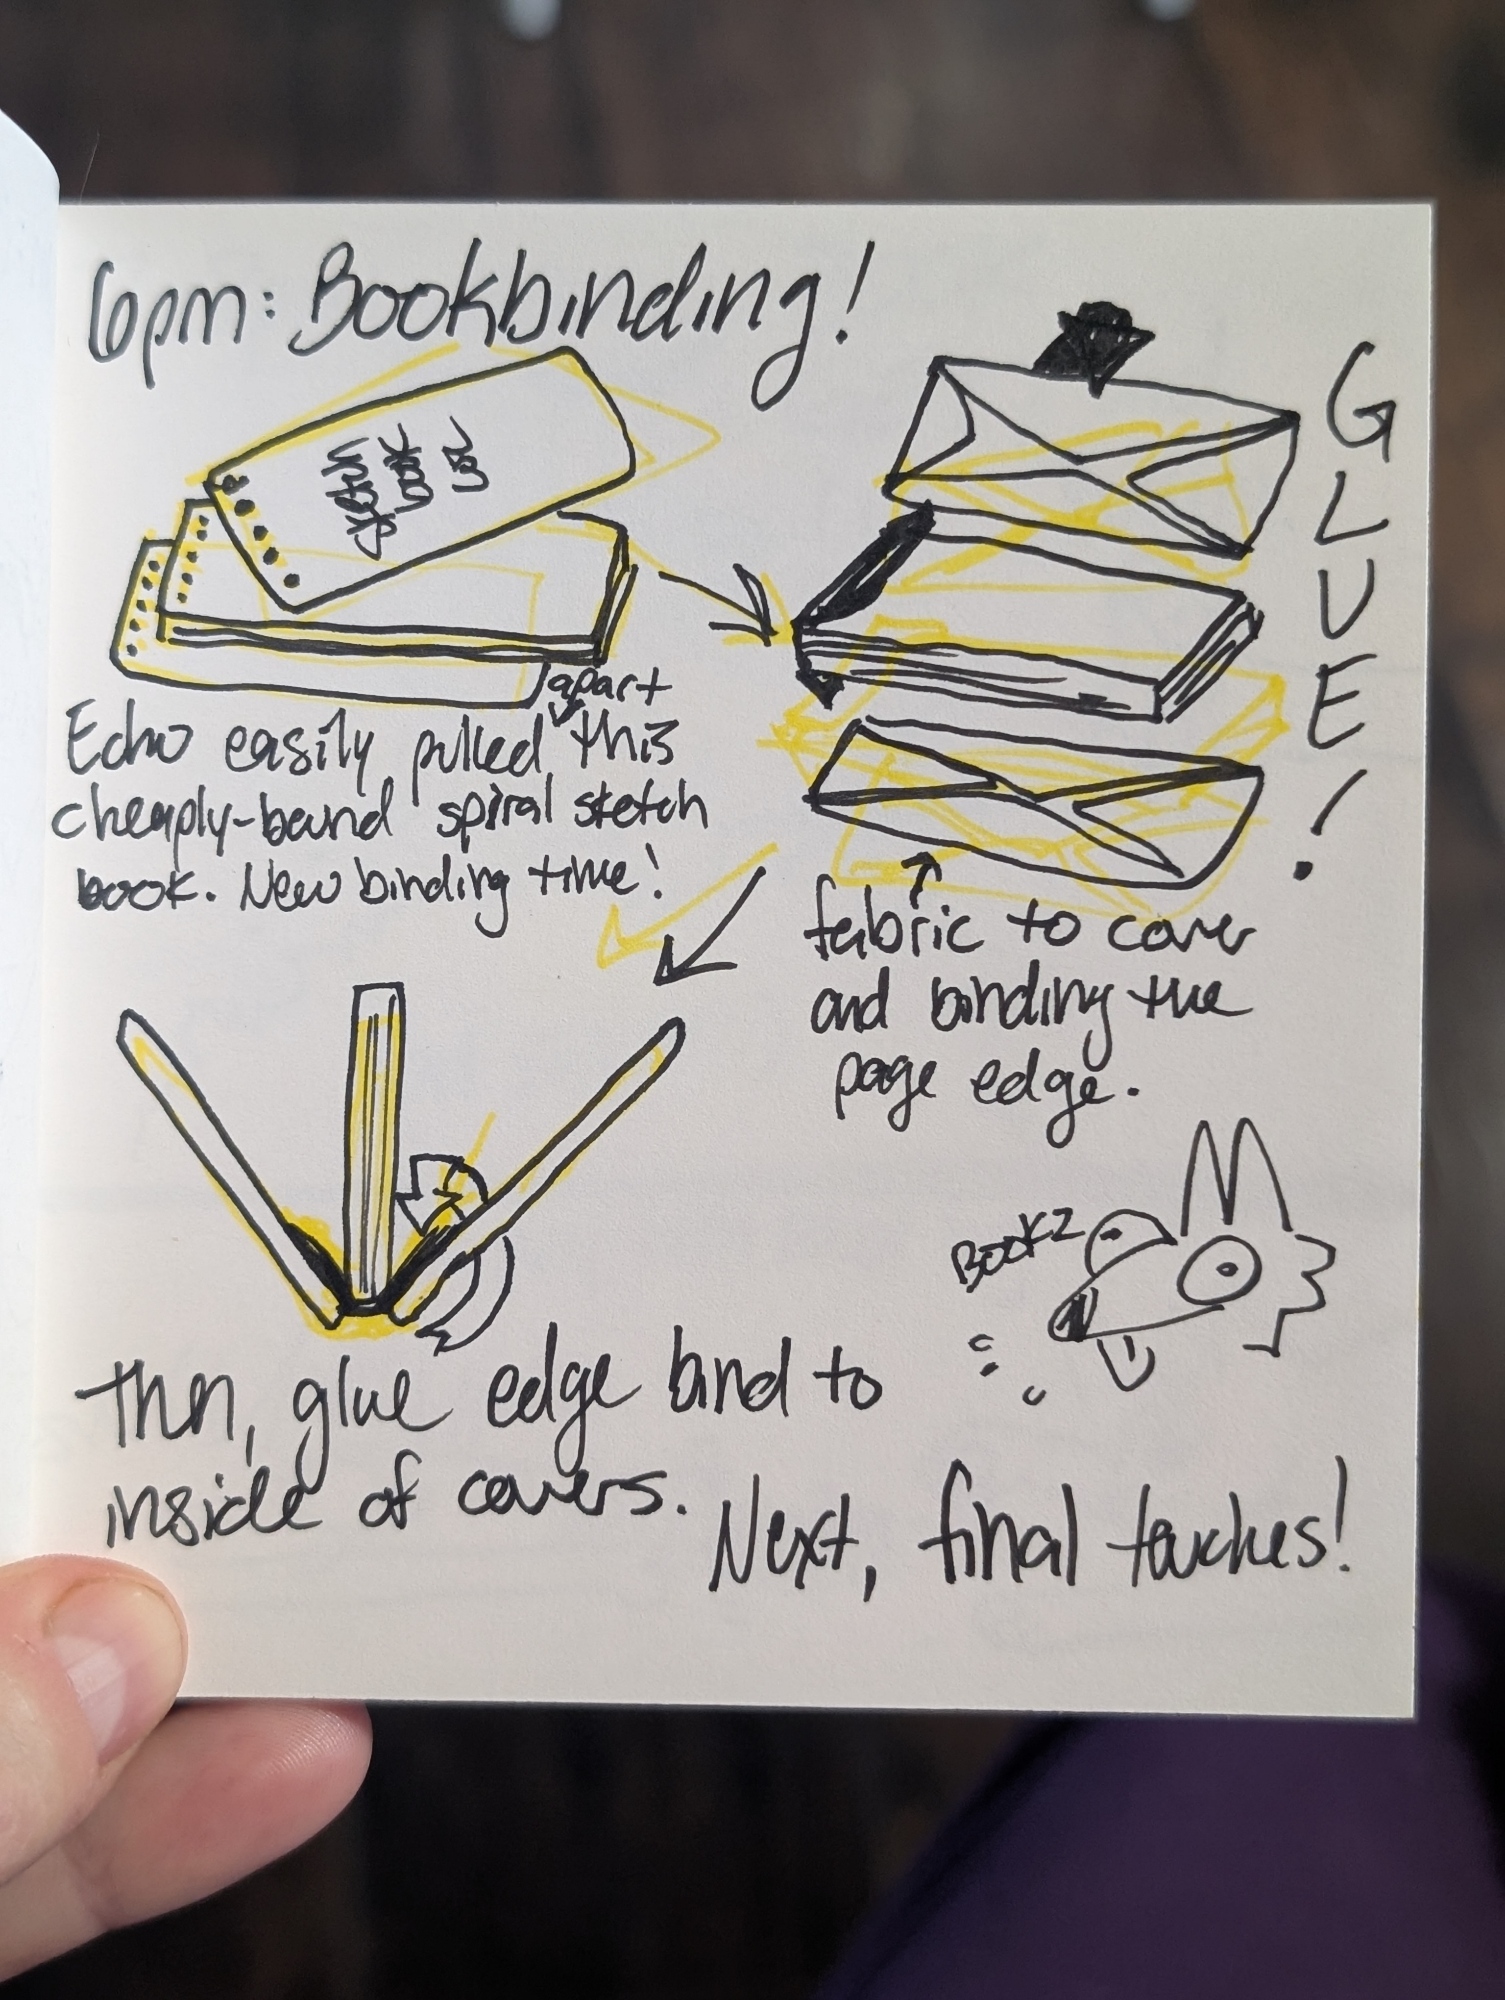 6pm: Bookbinding!
sketch
book
LOL
Echo easily pulled apart this
cheaply-bound spiral sketch
book. New binding time!
GLUE!
fabric to cover
and binding the
page edge.
BOOKZ
Then, glue edge bind to
inside of covers.
Next, final touches!